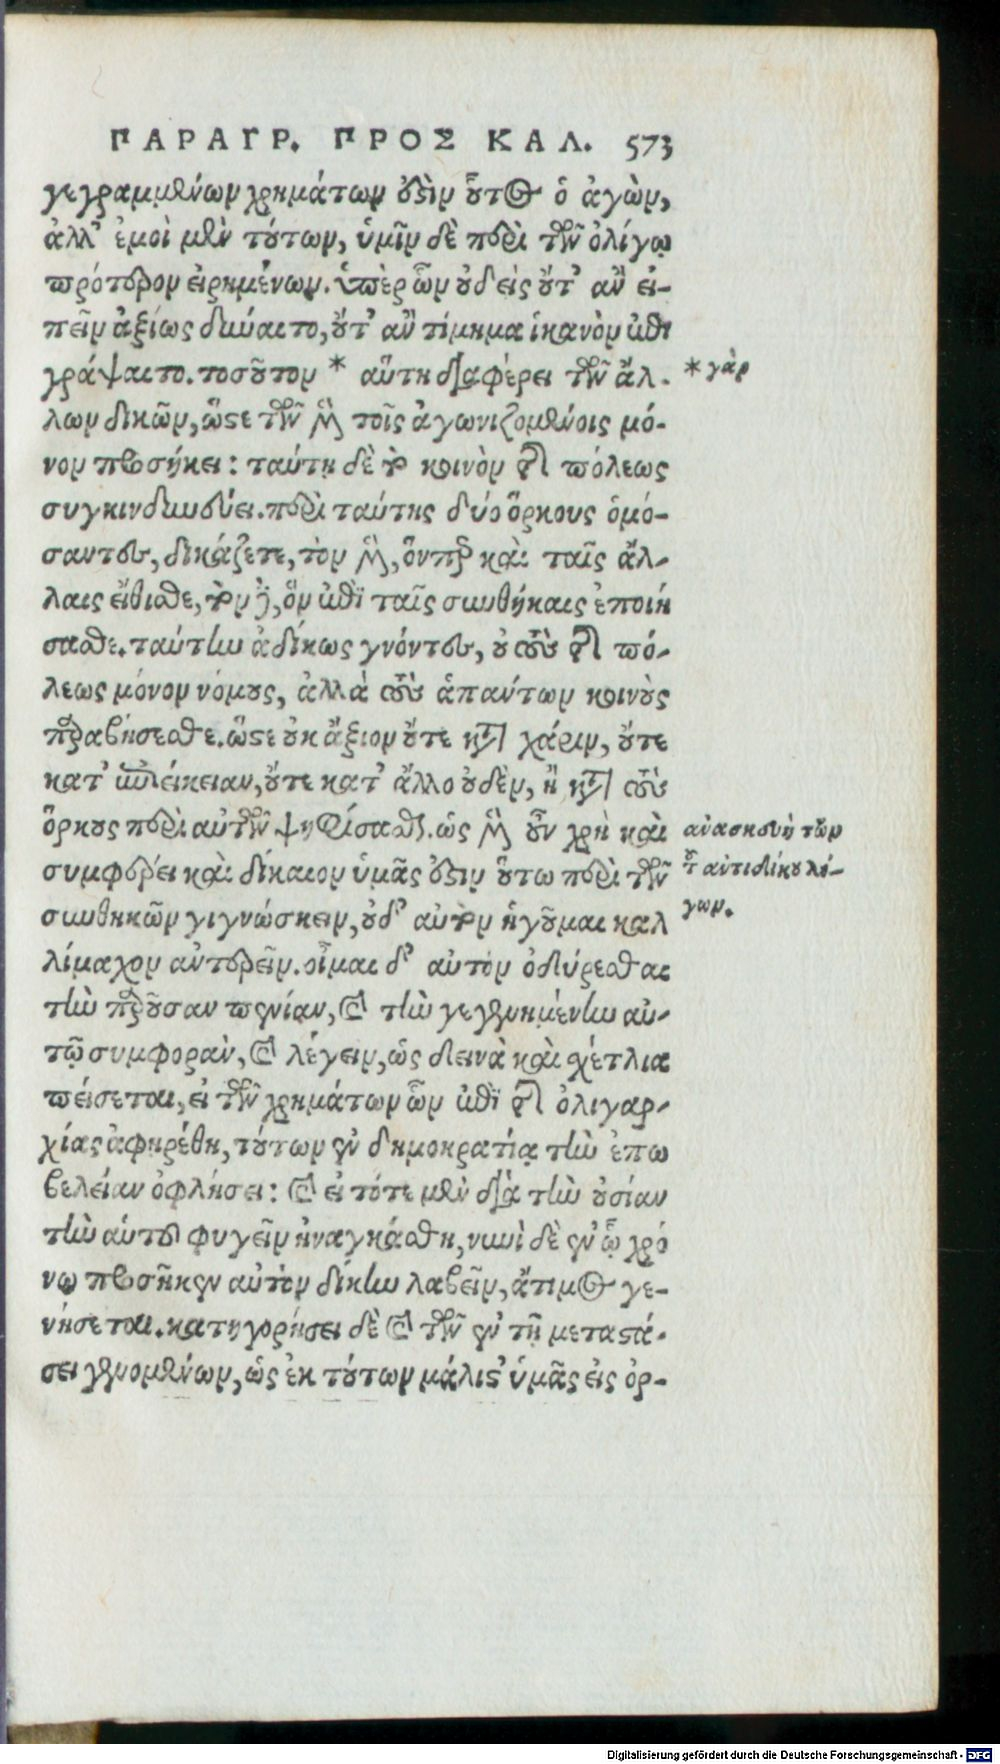 ΠΑΡΑΓΡ. ΠΡΟΣ ΚΑΛ. 573
γεγραμμένων χρημάτων ὅςιν οὗτος ὁ ἀγὼν,
ἀλλ' ἐμοὶ μὲν τούτων, ὑμῖν δὲ περὶ τῶν ὀλίγῳ
πρότερον εἰρημένων. ὑπὲρ ὧν οὐδεὶς οὔτ' ἂν εἰ-
πεῖν ἀξίως δύναιτο, οὔτ' ἂν τίμημα ἱκανὸν ἐπι
γράψαιτο. τοσοῦτον * αὕτη διαφέρει τῶν ἄλ-
* γὰρ
λων δικῶν, ὥςε τῶν μὲν τοῖς ἀγωνιζομένοις μό-
νον προσήκει: ταύτῃ δὲ τὸ κοινὸν τῆς πόλεως
συγκινδυνεύει. περὶ ταύτης δύο ὅρκους ὀμό-
σαντες, δικάζετε, τὸν μὲν, ὅνπερ καὶ ταῖς ἄλ-
λαις εἴθισθε, τὸν δὲ, ὃν ἐπὶ ταῖς συνθήκαις ἐποιή
σασθε. ταύτην ἀδίκως γνόντες, οὐ τοὺς τῆς πό-
λεως μόνον νόμους, ἀλλὰ τοὺς ἁπάντων κοινοὺς
παραβήσεσθε. ὥςε οὐκ ἄξιον οὔτε κατὰ χάριν, οὔτε
κατ' ἐπιείκειαν, οὔτε κατ' ἄλλο οὐδὲν, ἢ κατὰ τοὺς
ὅρκους περὶ αὐτῶν ψηφίσασθαι. ὡς μὲν οὖν χρὴ καὶ
ἀνασκευὴ τῶν
συμφέρει καὶ δίκαιον ὑμᾶς ὅςιν οὕτω περὶ τῶν
τοῦ ἀντιδίκου λό-
συνθηκῶν γιγνώσκειν, οὐδ' αὐτὸν ἡγοῦμαι καλ
γων.
λίμαχον ἀντερεῖν. οἶμαι δ' αὐτὸν ὀδύρεσθαι
τὴν παροῦσαν πενίαν, καὶ τὴν γεγενημένην αὐ-
τῷ συμφορὰν, καὶ λέγειν, ὡς δεινὰ καὶ σχέτλια
πείσεται, εἰ τῶν χρημάτων ὧν ἐπὶ τῆς ὀλιγαρ-
χίας ἀφῃρέθη, τούτων ἐν δημοκρατίᾳ τὴν ἐπω
βελείαν ὀφλήσει: καὶ εἰ τότε μὲν διὰ τὴν οὐσίαν
τὴν αὑτοῦ φυγεῖν ἠναγκάσθη, νυνὶ δὲ ἐν ᾧ χρό
νῳ προσῆκεν αὐτὸν δίκην λαβεῖν, ἄτιμος γε-
νήσεται. κατηγορήσει δὲ καὶ τῶν ἐν τῇ μεταςά-
σει γενομένων, ὡς ἐκ τούτων μάλις' ὑμᾶς εἰς ὀρ-
Digitalisierung gefördert durch die Deutsche Forschungsgemeinschaft - DFG